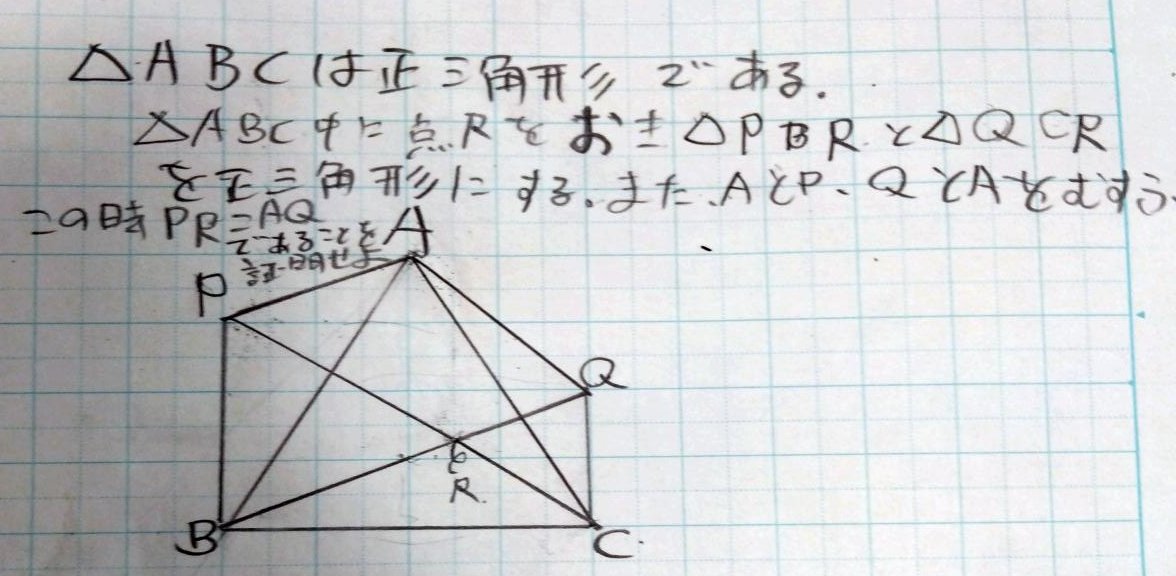 △ABCは正三角形である.
△ABC中に点Rをおき△PBRと△QCR
を正三角形にする.また.AとP、QとAをむすぶ.
この時PR=AQ
であることを
証明せよ
A
P
Q
R.
B
C.